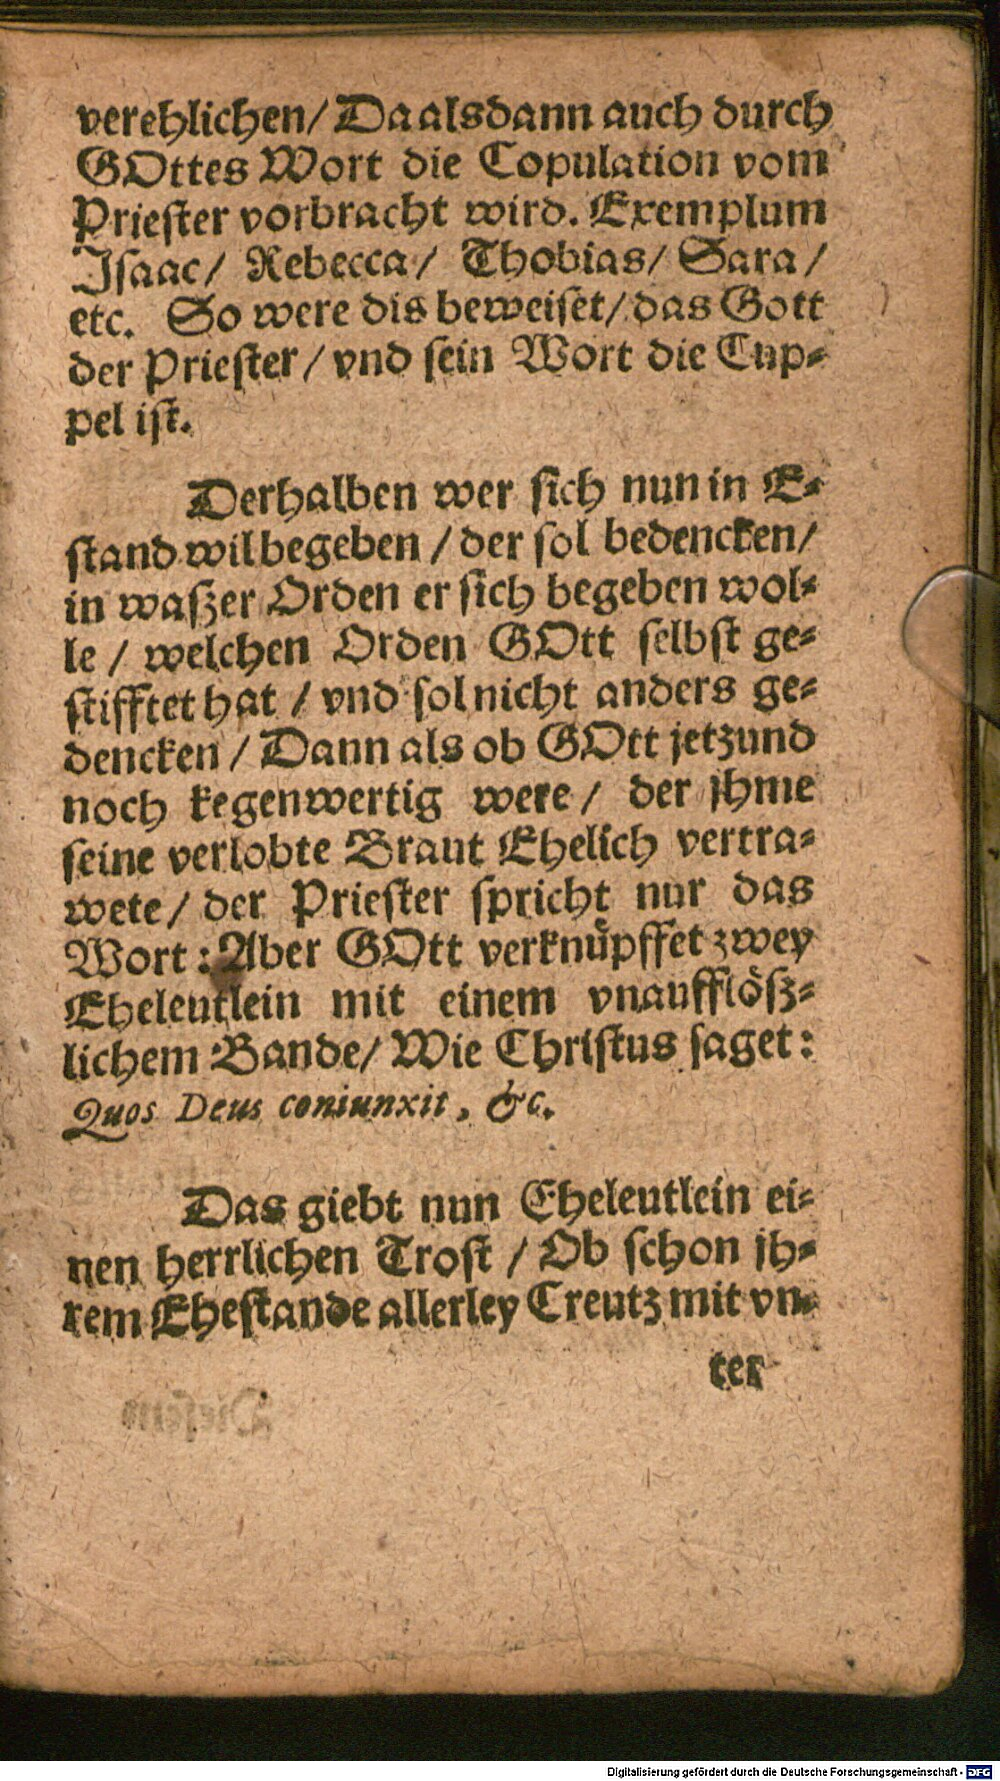 verehlichen/ Da alsdann auch durch
GOttes Wort die Copulation vom
Priester vorbracht wird. Exemplum
Jsaac/ Rebecca/ Thobias/ Sara/
etc. So were dis beweiset/ das Gott
der Priester/ vnd sein Wort die Cup-
pel ist.
Derhalben wer sich nun in E-
stand wil begeben / der sol bedencken/
in waszer Orden er sich begeben wol-
le / welchen Orden GOtt selbst ge-
stifftet hat / vnd sol nicht anders ge-
dencken / Dann als ob GOtt jetzund
noch kegenwertig were / der jhme
seine verlobte Braut Ehelich vertra-
wete/ der Priester spricht nur das
Wort: Aber GOtt verknüpffet zwey
Eheleutlein mit einem vnaufflösz-
lichem Bande/ Wie Christus saget:
Quos Deus coniunxit, &c.
Das giebt nun Eheleutlein ei-
nen herrlichen Trost / Ob schon jh-
rem Ehestande allerley Creutz mit vn-
ter
Digitalisierung gefördert durch die Deutsche Forschungsgemeinschaft - DFG